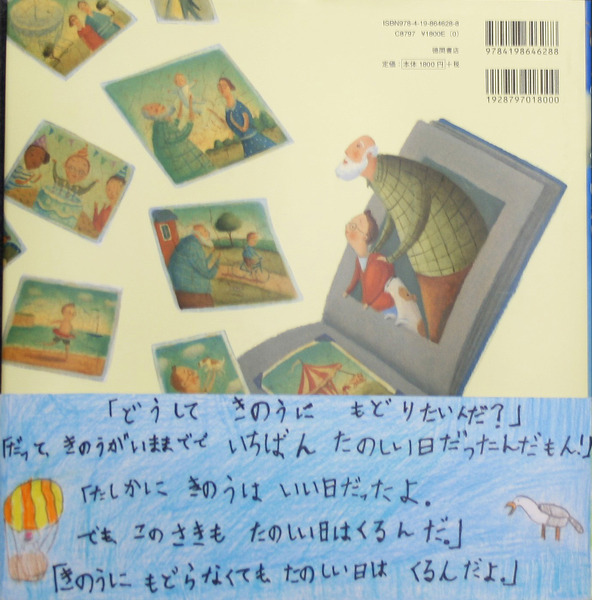 ISBN978-4-19-864628-8
C8797 ¥1800E (0)
徳間書店
定価:本体1800円+税
9784198646288
1928797018000
「どうして きのうに もどりたいんだ?」
「だって、きのうがいままでで いちばん たのしい日だったんだもん!」
「たしかに きのうは いい日だったよ。
でも、このさきも たのしい日はくるんだ。」
「きのうに もどらなくても、たのしい日は くるんだよ。」